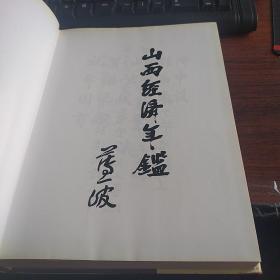 山西经济年鑑
薄一波